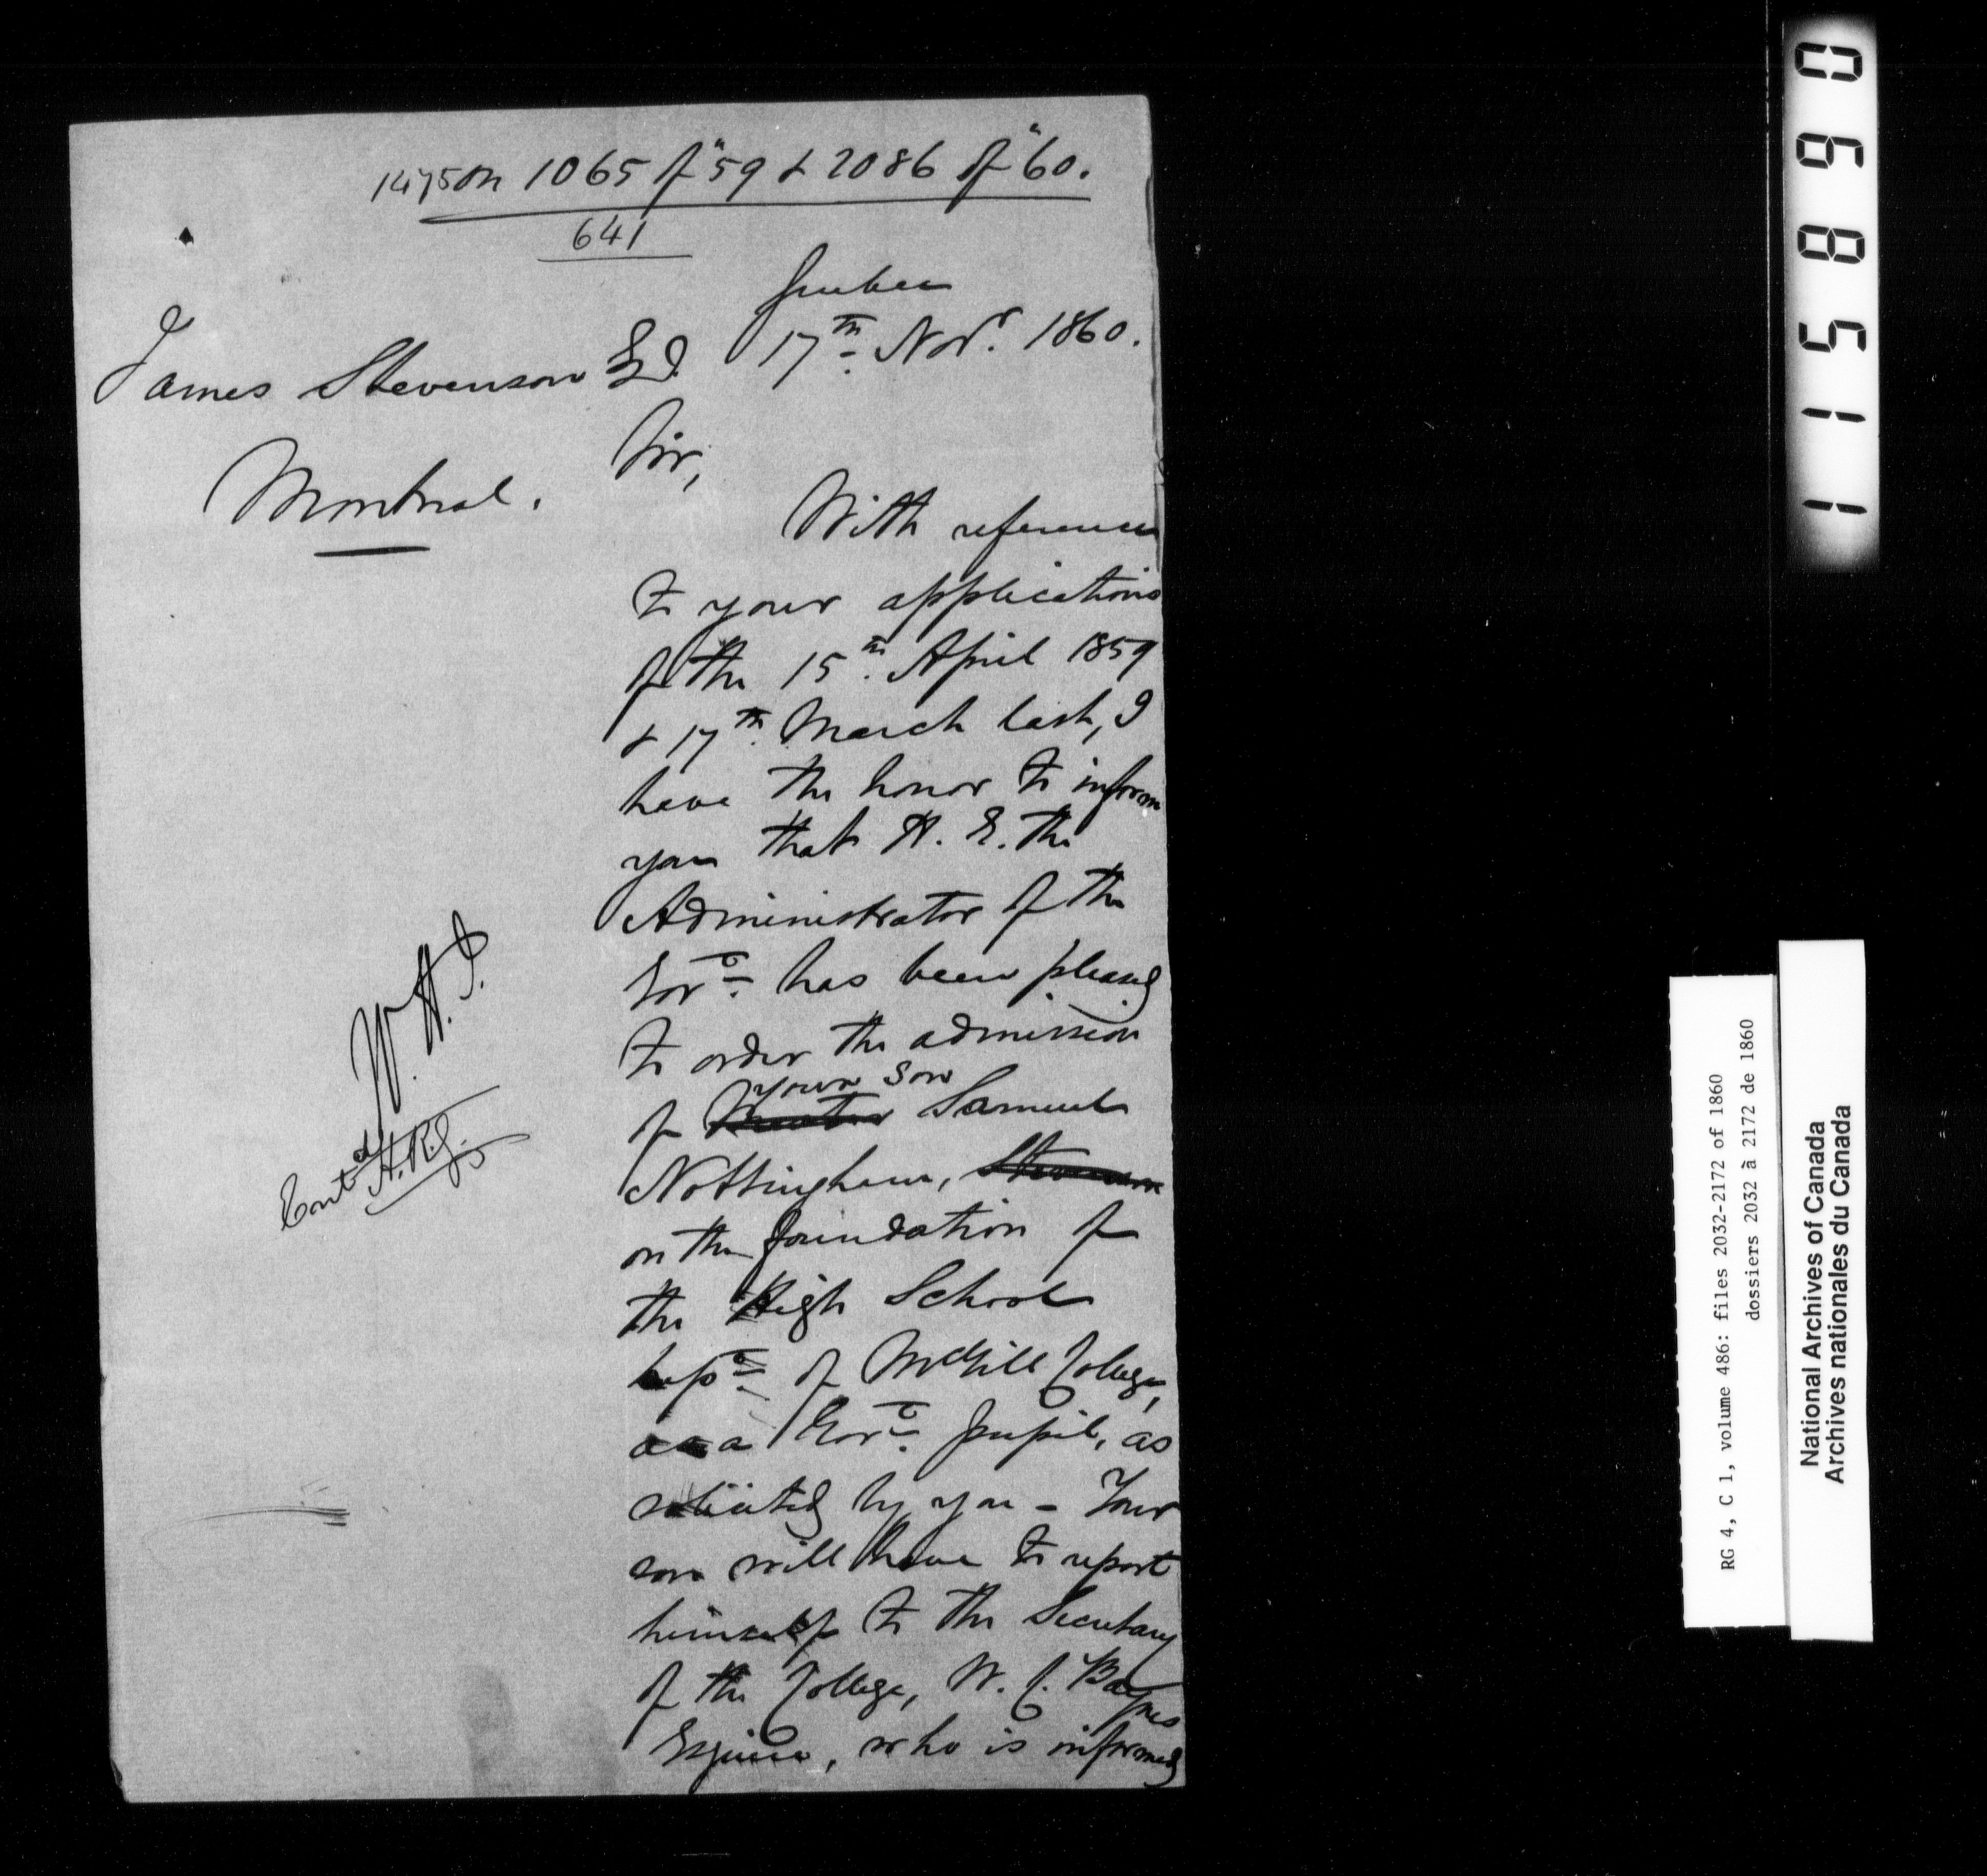 1475 on 1065 of "59 & 2086 of "60.
641
Quebec
17th Novr. 1860.
James Stevenson Esq.
Montreal.
Sir,
With reference
to your applications
of the 15th April 1859
& 17th March last, I
have the honor to inform
you that H. E. the
Administrator of the
Govt. has been pleased
to order the admission
your son
of Master Samuel
Nottingham, Stevenson
on the foundation of
the High School
Dept. of McGill College,
as a Govt. pupil, as
solicited by you - Your
son will have to report
himself to the Secretary
of the College, W. C. Baynes
Esquire, who is informed
W. H. J.
Entd
115890
RG 4, C 1, volume 486: files 2032-2172 of 1860
dossiers 2032 à 2172 de 1860
National Archives of Canada
Archives nationales du Canada